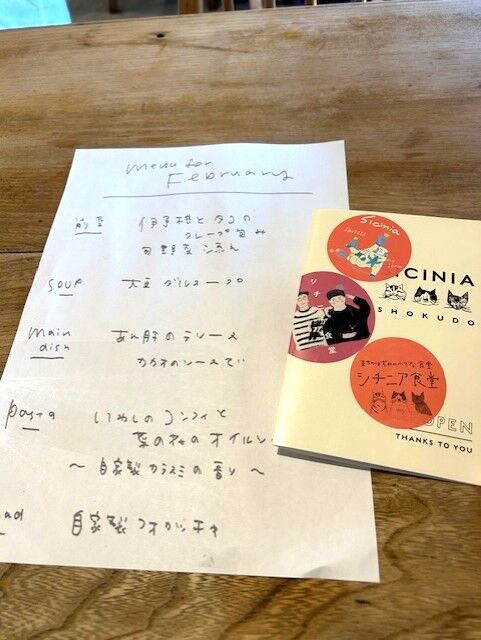 menu for
February
前菜
クレープ包み
旬野菜
Soup
大豆
main
dish
あん肝のテリーヌ
カカオのソースで
pasta
いわしのコンフィと
菜の花のオイル
〜自家製カラスミの香り〜
自家製フォカッチャ
Sicinia
シチニア
食堂
CINIA
SHOKUDO
シチニア食堂
OPEN
THANKS TO YOU